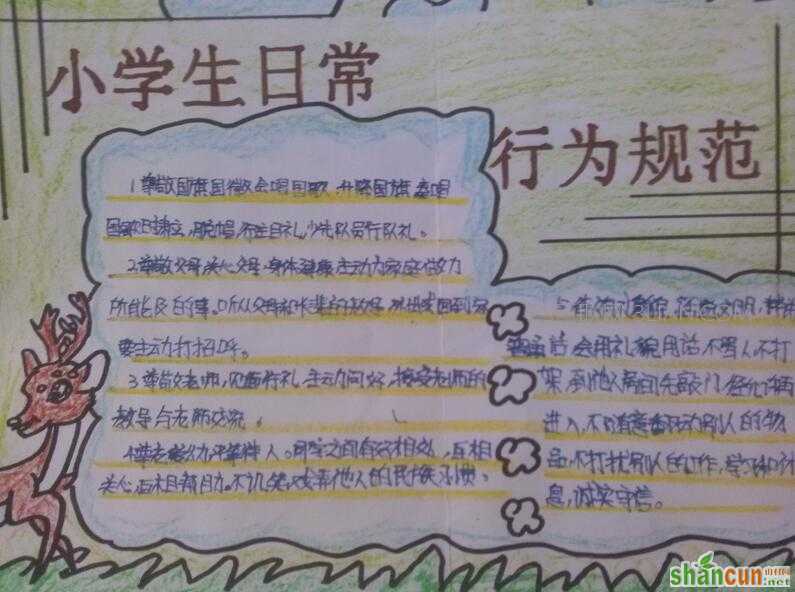 小学生日常
行为规范
1.尊敬国旗国徽会唱国歌 升降国旗奏唱
国歌时肃立,脱帽,行注目礼,少先队员行队礼。
2.尊敬父母,关心父母身体健康主动为家庭做力
所能及的事。听从父母和长辈的教导,外出或回到家
要主动打招呼。
3.尊敬老师,见面行礼,主动问好,接受老师的
教导与老师交流。
4.尊老爱幼平等待人。同学之间友好相处,互相
关心,互相帮助。不讥笑,戏弄他人的民族习惯。
5.待人
话,会用礼貌用语不骂人不打
架,到他人房间先敲门,经允许再
进入,不随意翻动别人的物
品,不打扰别人的工作,学习和休
息,诚实守信。
shancun
山村网
.net